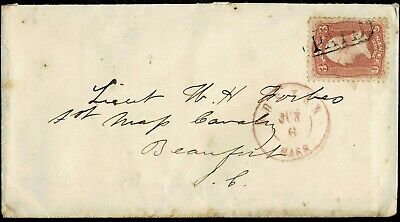 PAID
3 3
Lieut W. H Forbes
1st Mass Cavalry
Beaufort
S. C.
JUN
6
MASS.